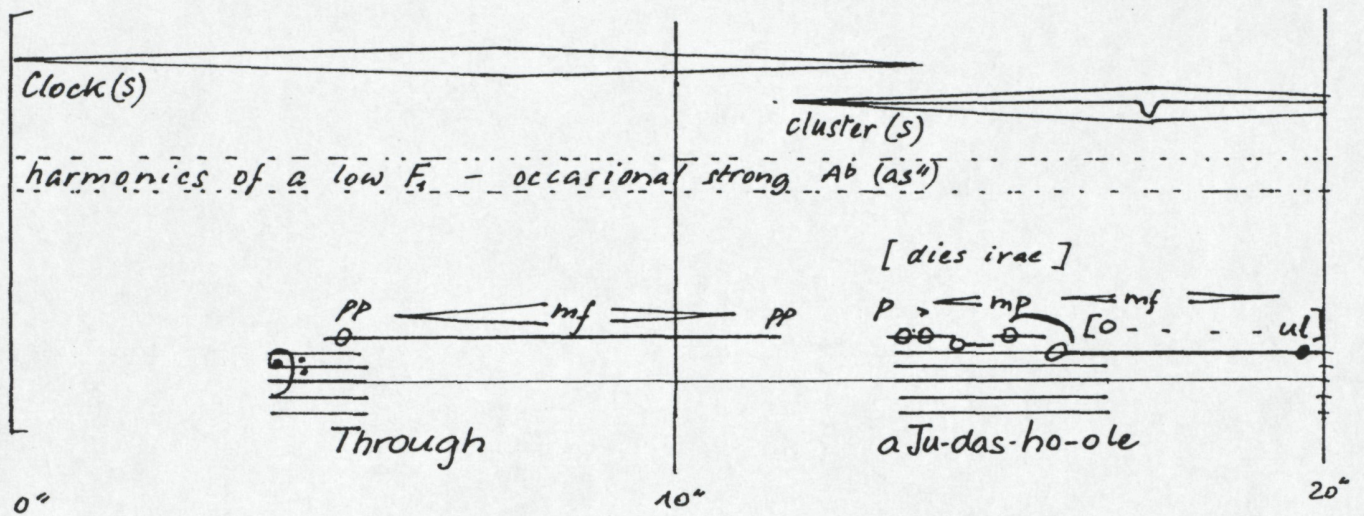 Clock(s)
cluster(s)
harmonics of a low F₁ – occasional strong Ab (as")
[dies irae]
pp mf pp p > mp mf
[o - - - - ul]
Through a Ju-das-ho-ole
0" 10" 20"